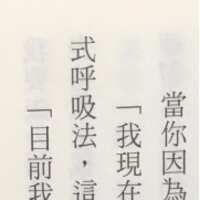 當你因為
「我現在
式呼吸法，這
「目前我